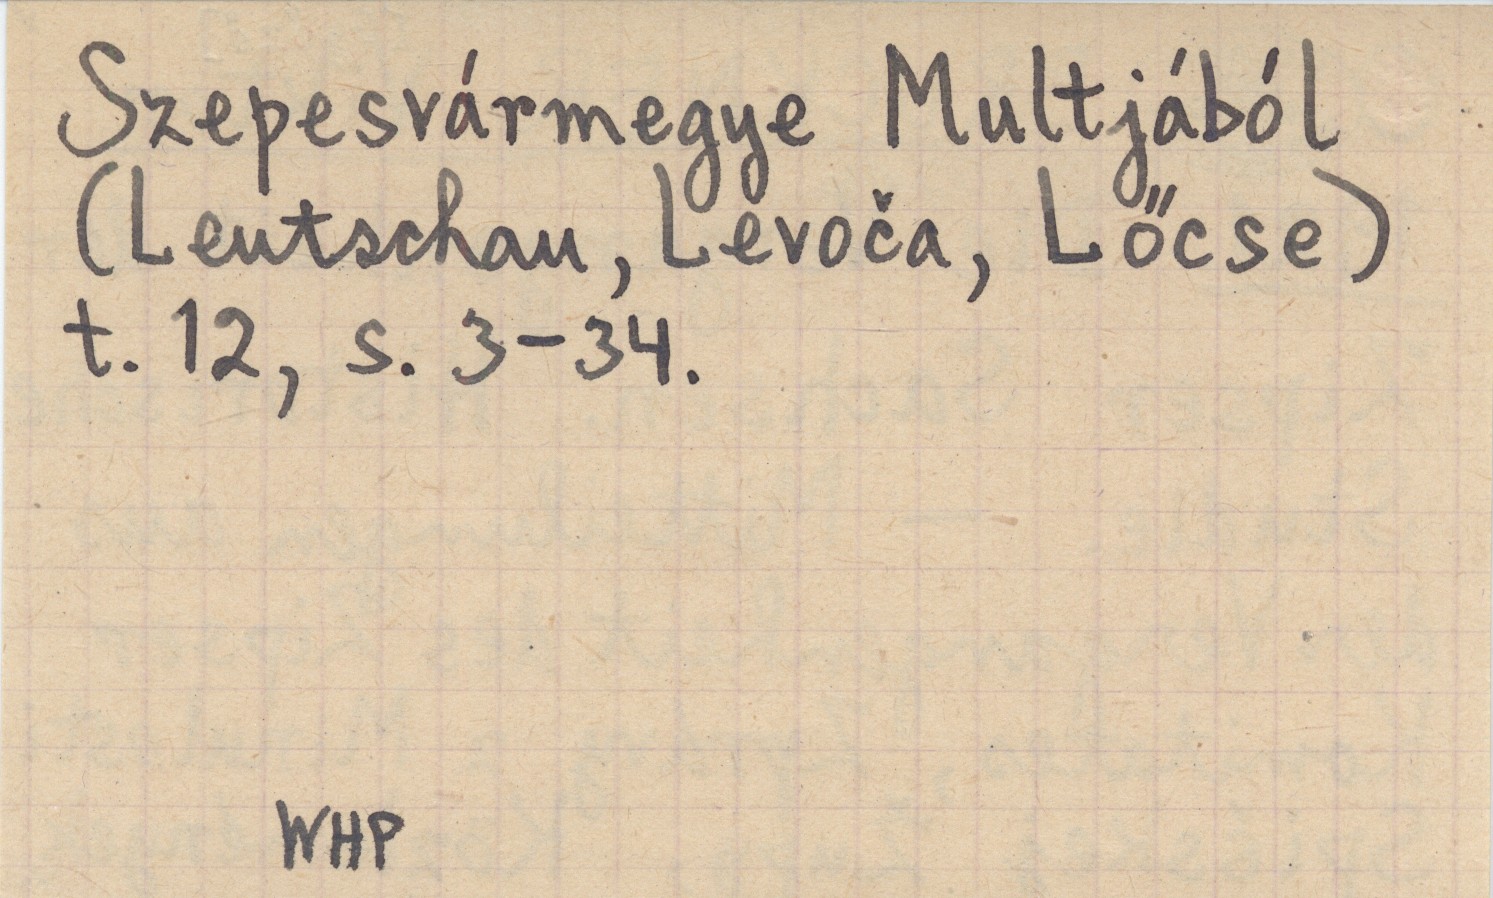 Szepesvármegye Multjából
(Leutschau, Levoča, Lőcse)
t. 12, s. 3-34.
WHP